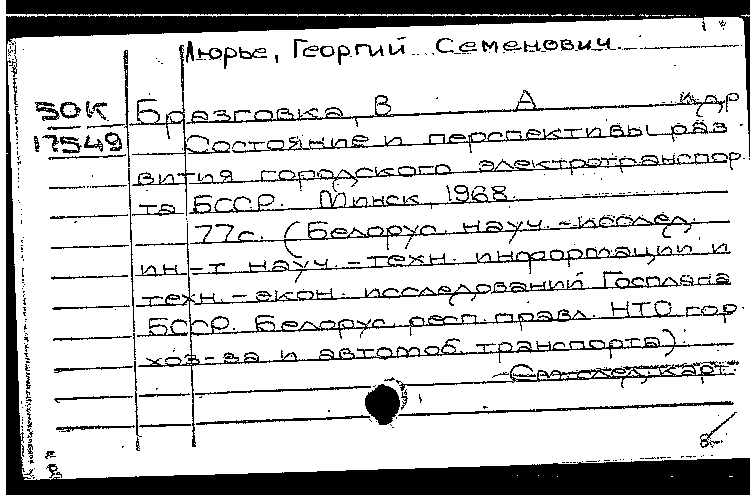 Люрье, Георгий Семенович
50К Бразговка, В А и др
17549 Состояние и перспективы раз
вития городского электротранспор
та БССР. Минск, 1968.
77с. (Белорус. науч.-исслед.
ин-т науч.-техн. информации и
техн.-экон. исследований Госплана
БССР. Белорус. респ. правл. НТО гор.
хоз-ва и автомоб. транспорта).
См. след. карт.